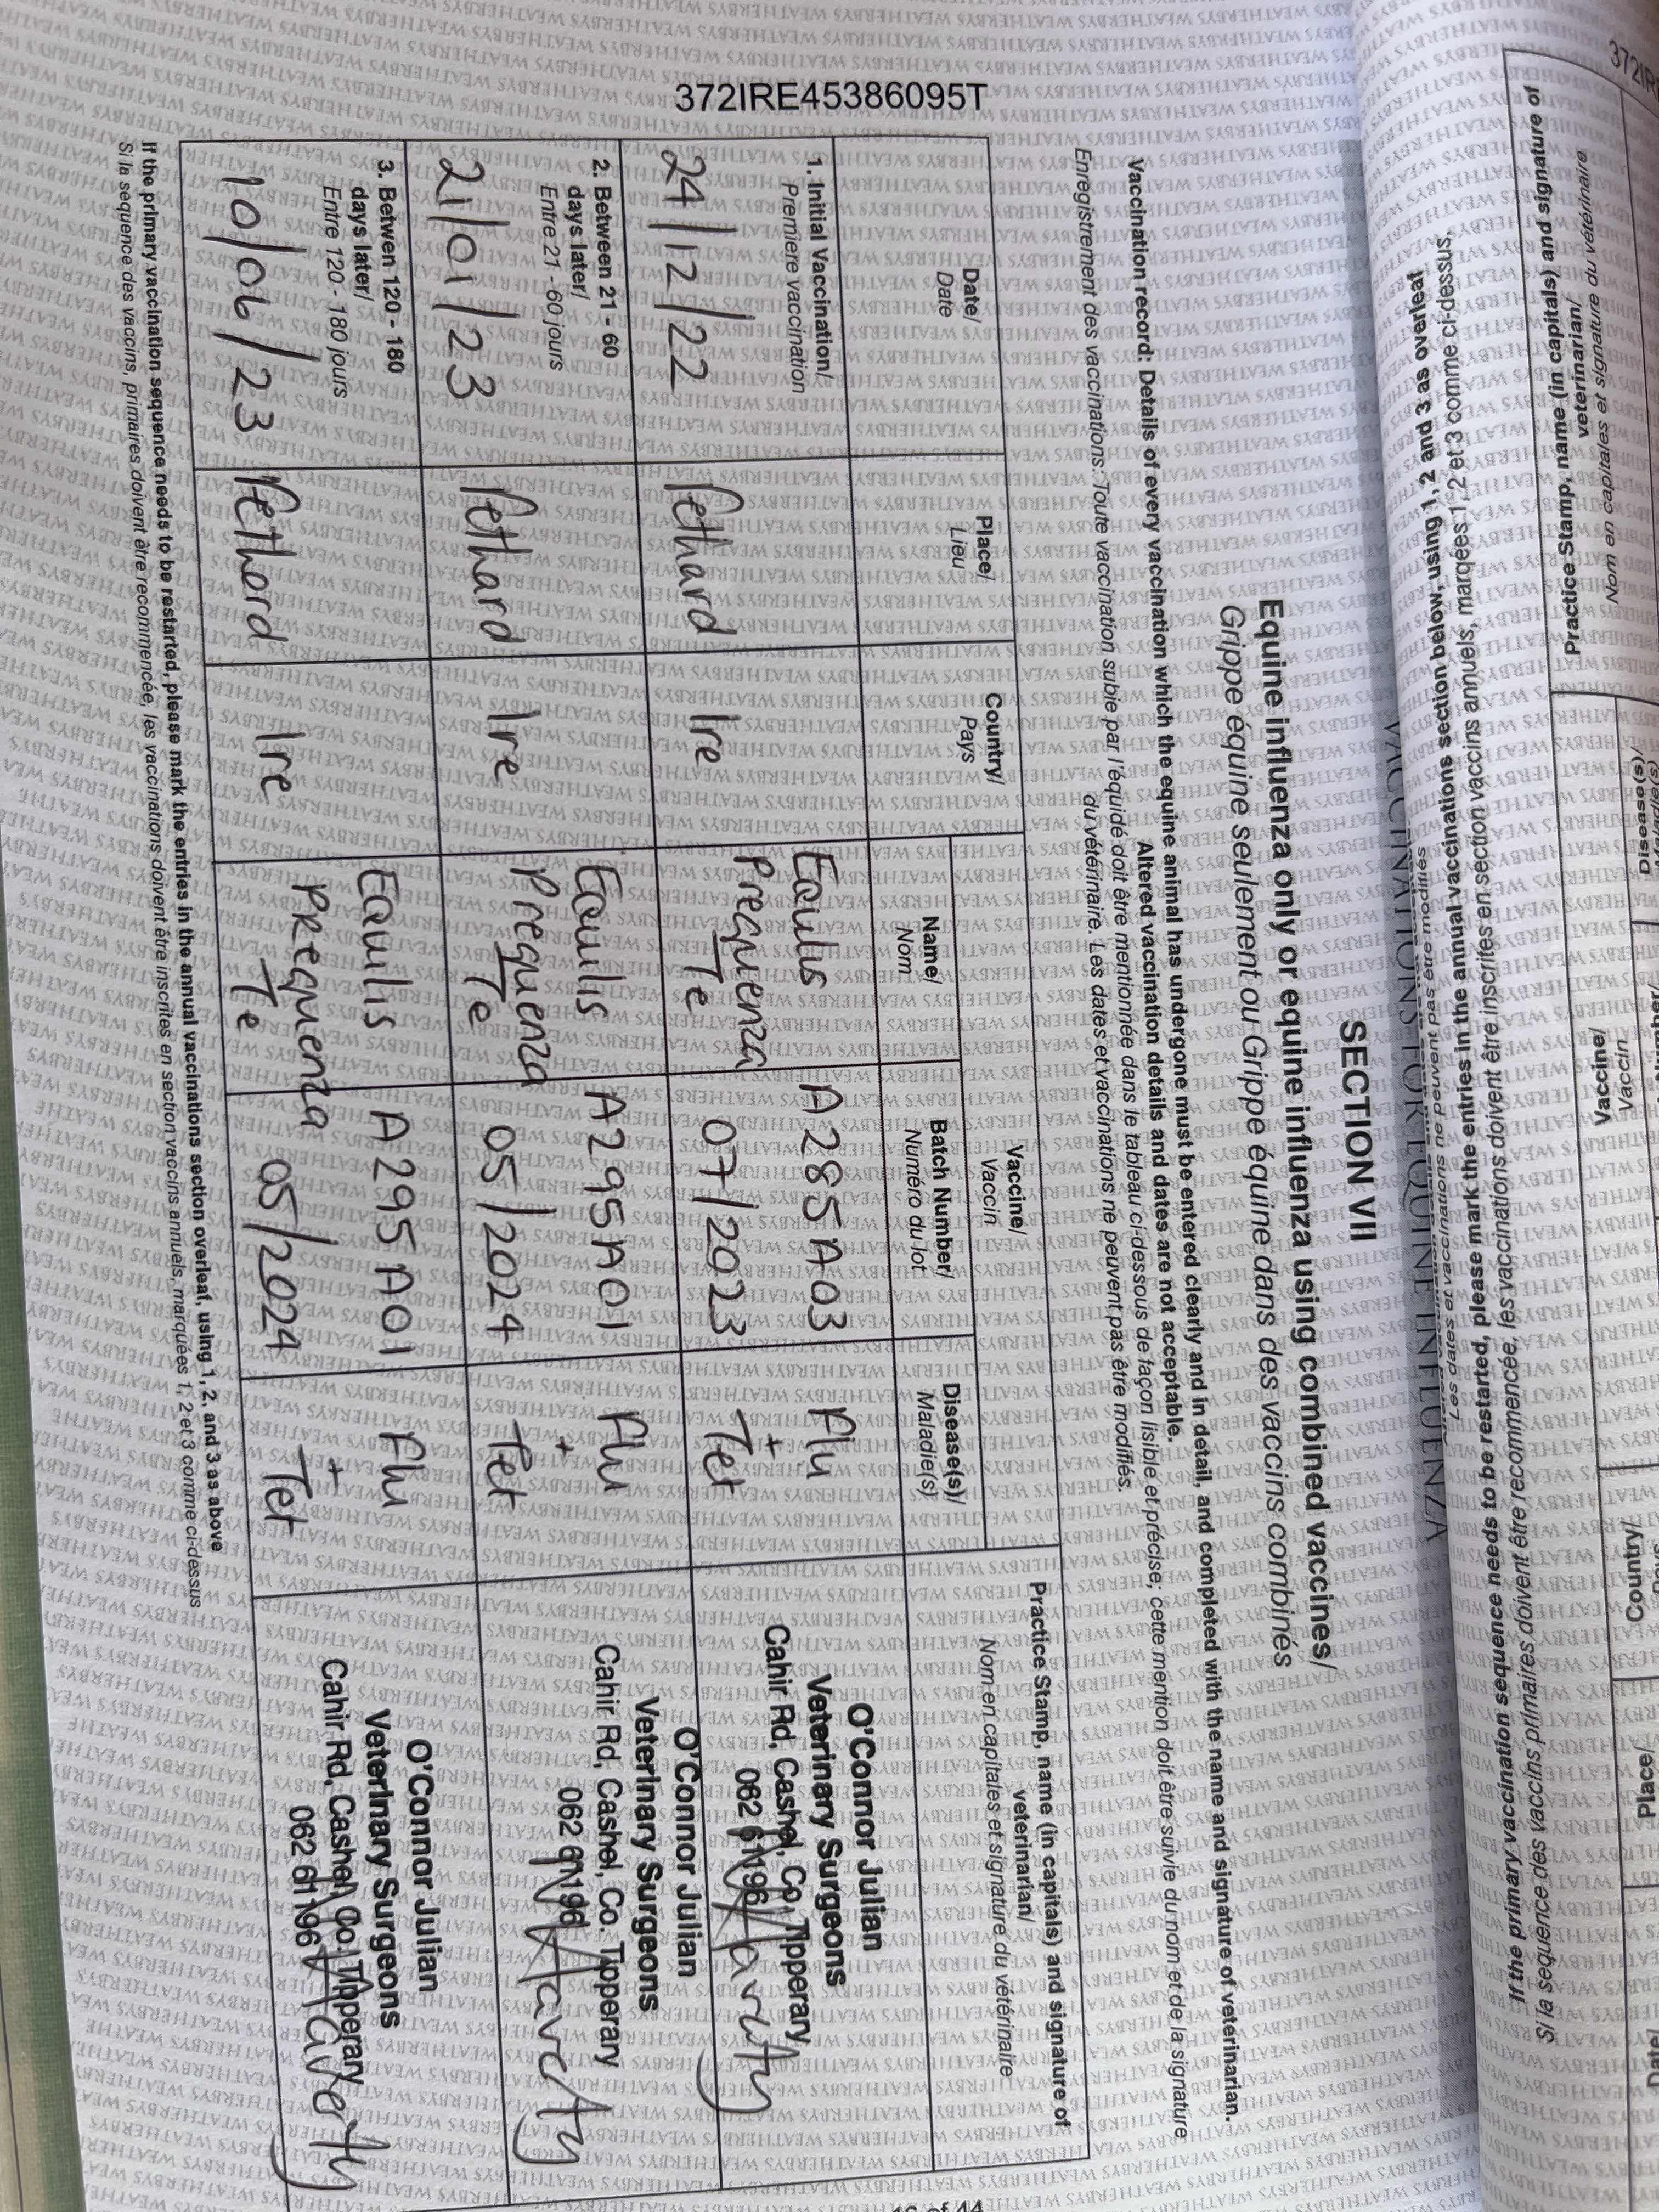 372IRE45386095T
VACCINATIONS FOR EQUINE INFLUENZA
SECTION VII
Equine influenza only or equine influenza using combined vaccines/
Grippe équine seulement ou Grippe équine dans des vaccins combinés
Vaccination record: Details of every vaccination which the equine animal has undergone must be entered clearly and in detail, and completed with the name and signature of veterinarian.
Altered vaccination details and dates are not acceptable.
Enregistrement des vaccinations: Toute vaccination subie par l'équidé doit être mentionnée dans le tableau ci-dessous de façon lisible et précise; cette mention doit être suivie du nom et de la signature
du vétérinaire. Les dates et vaccinations ne peuvent pas être modifiés.
Date/
Date
Place/
Lieu
Country/
Pays
Vaccine/
Vaccin
Name/
Nom
Batch Number/
Numéro du lot
Disease(s)/
Maladie(s)
Practice Stamp, name (in capitals) and signature of
veterinarian/
Nom en capitales et signature du vétérinaire
1. Initial Vaccination/
Premiere vaccination
24/12/22
Fethard
Ire
Equilis
Prequenza
Te
A285A03
07/2023
Flu
+
Tet
O'Connor Julian
Veterinary Surgeons
Cahir Rd, Cashel, Co. Tipperary
062 61196
2. Between 21 - 60
days later/
Entre 21 - 60 jours
21/01/23
Fethard
Ire
Equilis
Prequenza
Te
A295A01
05/2024
Flu
+
Tet
O'Connor Julian
Veterinary Surgeons
Cahir Rd, Cashel, Co. Tipperary
062 61196
3. Between 120 - 180
days later/
Entre 120 - 180 jours
10/06/23
Fethard
Ire
Equilis
Prequenza
Te
A295A01
05/2024
Flu
+
Tet
O'Connor Julian
Veterinary Surgeons
Cahir Rd, Cashel, Co. Tipperary
062 61196
If the primary vaccination sequence needs to be restarted, please mark the entries in the annual vaccinations section overleaf, using 1, 2, and 3 as above
Si la séquence des vaccins, primaires doivent être recommencée, les vaccinations doivent être inscrites en section vaccins annuels, marquées 1, 2 et 3 comme ci-dessus
372IRE
Place/
Country/
Vaccine/
Vaccin
Disease(s)/
Practice Stamp, name (in capitals) and signature of
veterinarian/
Nom en capitales et signature du vétérinaire
If the primary vaccination sequence needs to be restarted, please mark the entries in the annual vaccinations section below, using 1, 2 and 3 as overleaf
Si la séquence des vaccins primaires doivent être recommencée, les vaccinations doivent être inscrites en section vaccins annuels, marquées 1, 2 et 3 comme ci-dessus.
Les dates et vaccinations ne peuvent pas être modifiés